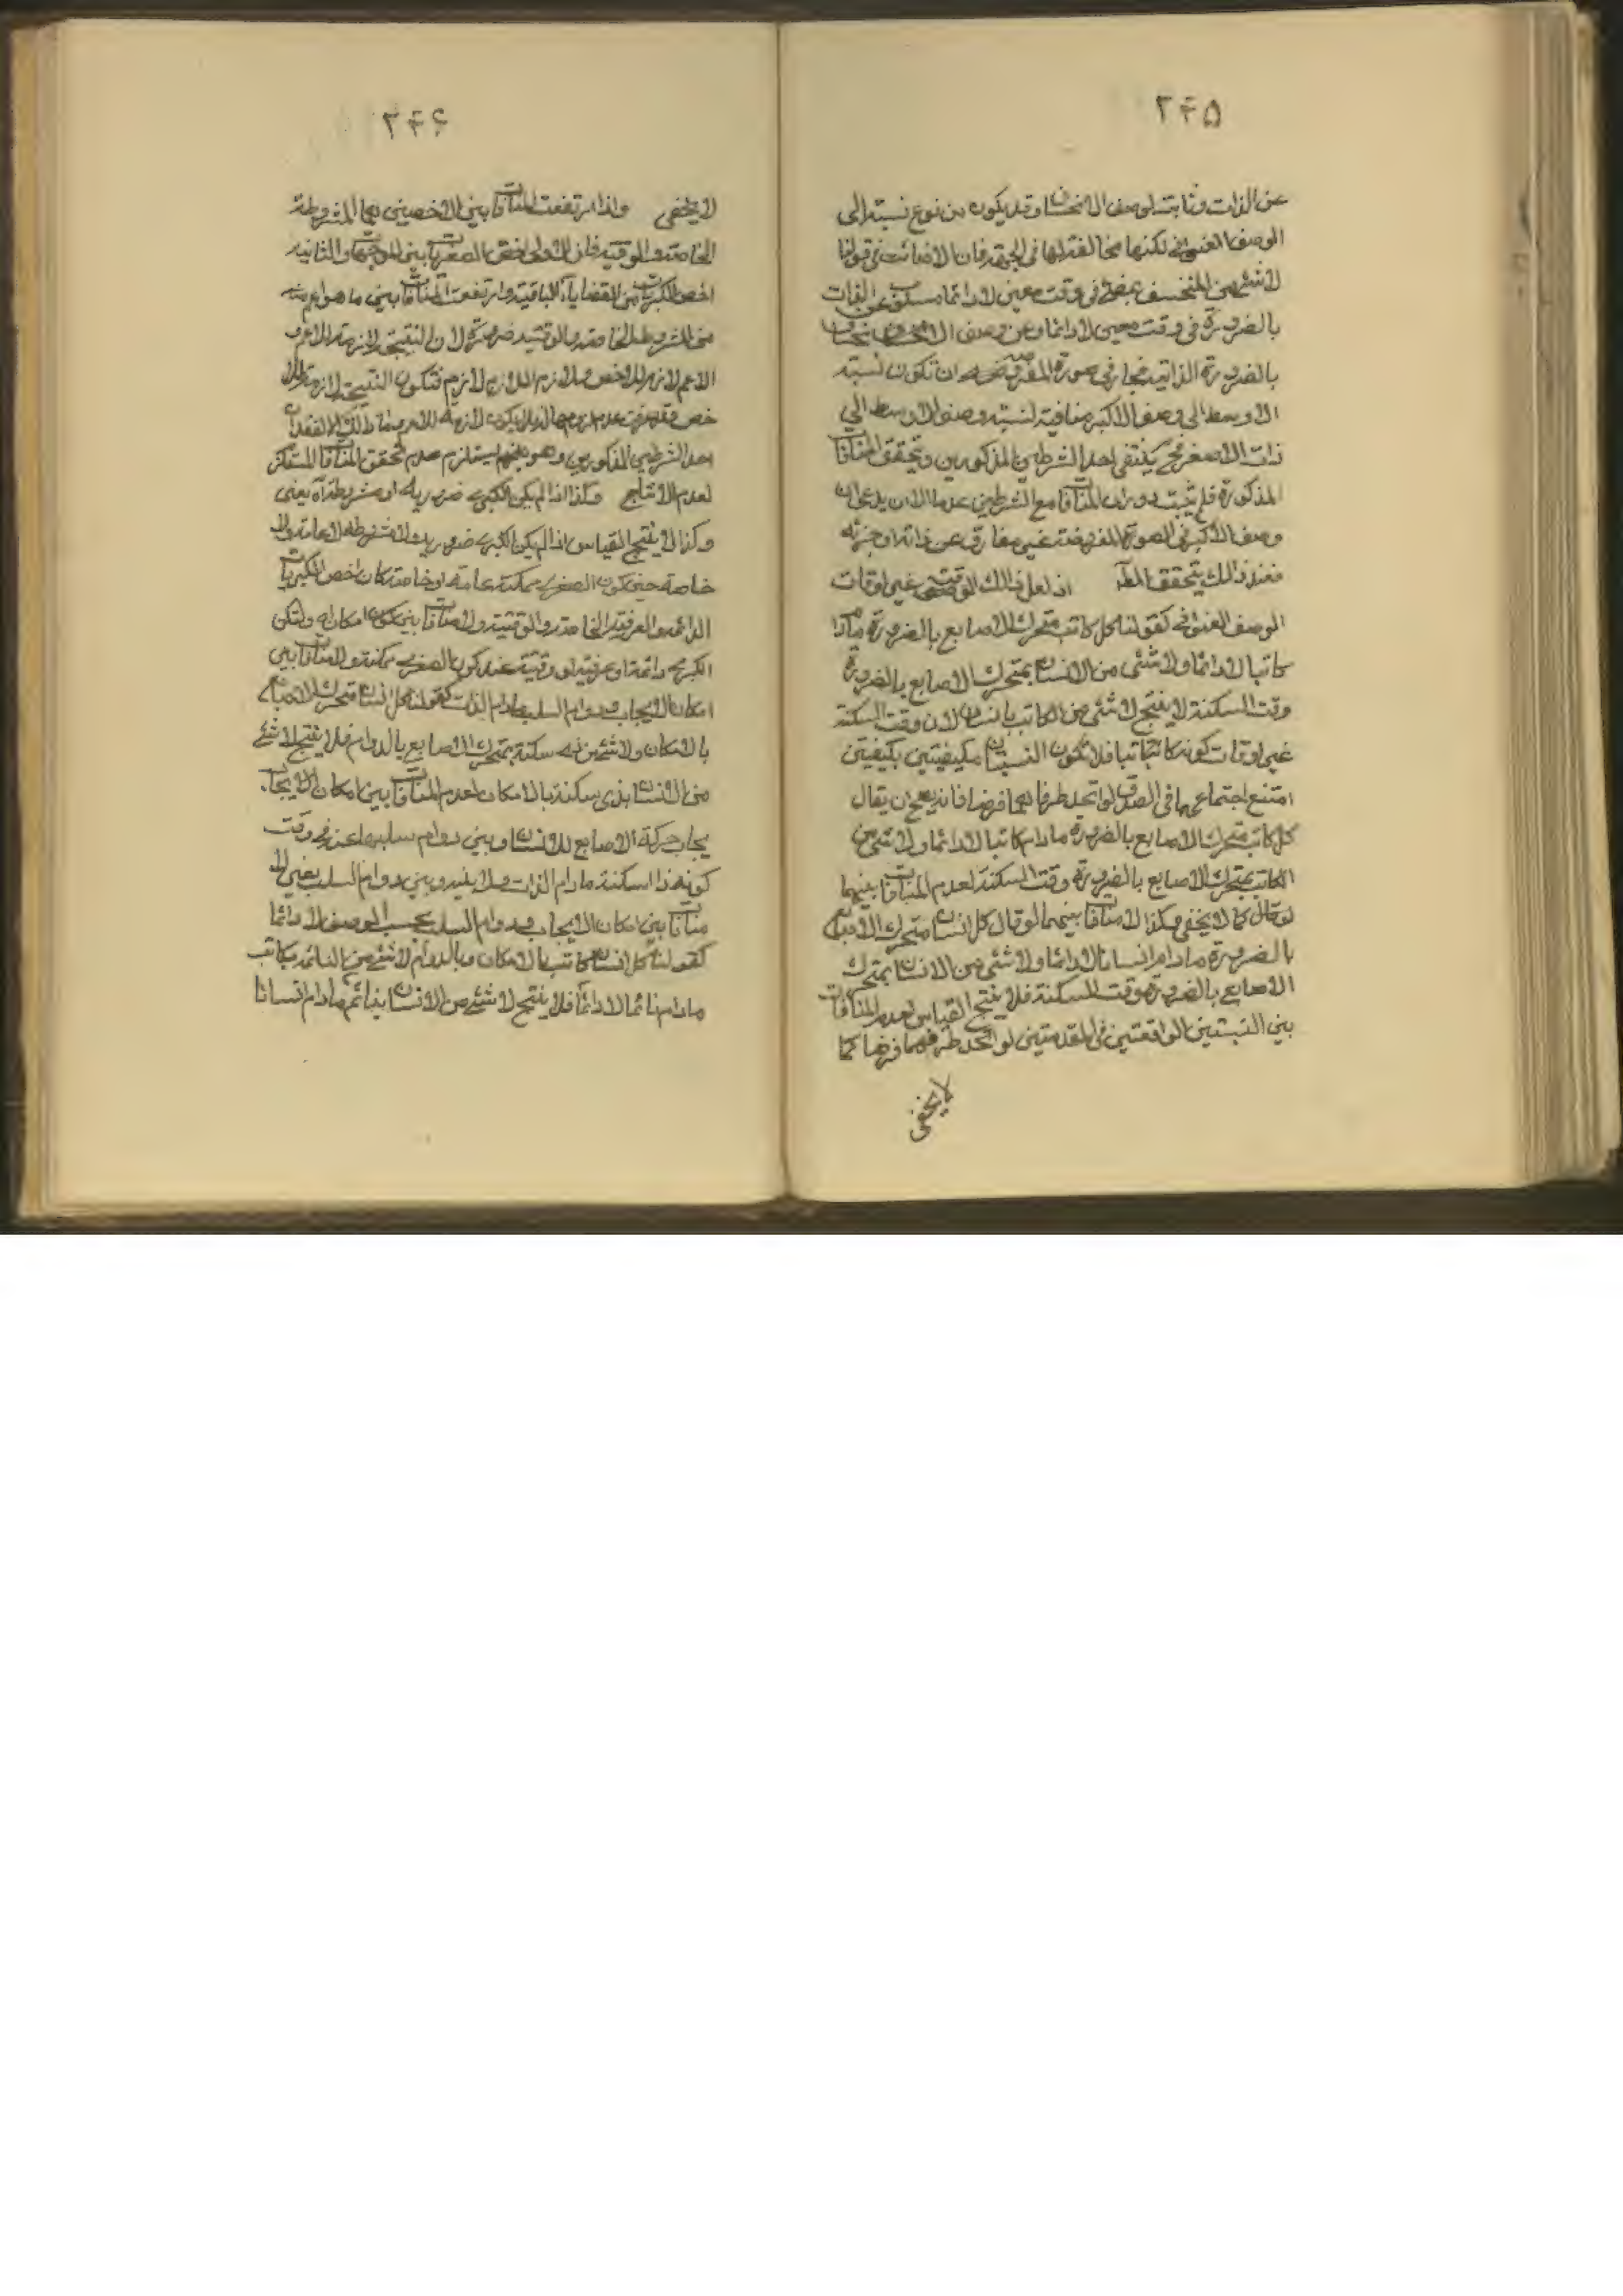 ۲۴۵
عن الذات وثابت لوصف الانخساف وقد يكون من نوع نسبته الى
الوصف العنواني لكنها مخالفة لها في الجهة فان الاضائت في قولنا
لا شئ من المنخسف بمضئ في وقت معين لا دائما مسلوب عن الذات
بالضرورة في وقت معين لا دائما وعن وصف الانخساف
بالضرورة الذاتية فجاز في صورة المفروضة ان تكون نسبته
الاوسط الى وصف الاكبر منافية لنسبته وصف الاوسط الى
ذات الاصغر ينتفى احد الشرطين المذكورين وتحقق المنافات
المذكورة فلم يثبت دوران المنافات مع الشرطين عدما الا ان يدعى ان
وصف الاكبر في الصورة المفروضة غير مفارق عن ذاته او جزئه
فعند ذالك يتحقق المط اذ لعل ذالك الوقت غير اوقات
الوصف العنواني كقولنا كل كاتب متحرك الاصابع بالضرورة مادام
كاتبا لا دائما ولا شئ من الانسان بمتحرك الاصابع بالضرورة
وقت السكنة لا ينتج لا شئ من الكاتب بانسان لان وقت السكنة
غير اوقات كونه كاتبا فلا تكون النسبتان مكيفيتين بكيفيتين
امتنع اجتماعهما في الصدق لو اتحد طرفاهما فرضا فانه يصح ان يقال
كل كاتب متحرك الاصابع بالضرورة مادام كاتبا لا دائما ولا شئ من
الكاتب بمتحرك الاصابع بالضرورة وقت السكنة لعدم المنافات بينهما
لو قال كما لا يخفى وكذا لا منافات بينهما لو قال كل انسان متحرك الاصابع
بالضرورة مادام انسانا لا دائما ولا شئ من الانسان بمتحرك
الاصابع بالضرورة وقت السكنة فلا ينتج القياس لعدم المنافات
بين النسبتين الواقعتين في المقدمتين لو اتحد طرفهما فرضا كما
لا يخفى
۲۴۶
لا يخفى واذا ارتفعت المنافات بين الاخصين هما المشروطة
الخاصة والوقتية فان الاولى اخص الصغريات والثانية
اخص الكبريات من القضايا الباقية وارتفعت المنافات بين ما هو اعم منه
من المشروطة الخاصة والوقتية ضرورة لان النتيجة لازمة للاعم و
الاعم لازم للاخص ولازم اللازم لازم فتكون النتيجة لازمة للا
خص وقد عدم لزومها له فلا يكون لازمة للاعم ذالك الا لفقدان
احد الشرطين المذكورين وهو يستلزم عدم تحقق المنافات المستلزم
لعدم الانتاج وكذا اذا لم يكن الكبرى ضرورية او مشروطة اه يعنى
وكذا لا ينتج القياس اذا لم يكن الكبرى ضرورية ولا مشروطة لا عامة ولا
خاصة حين كون الصغرى ممكنة عامة او خاصة كان اخص الكبريات
الدائمة والعرفية الخاصة والوقتية ولا منافات بين امكان ولتكن
الكبرى دائمة او عرفية او وقتية عند كون الصغرى ممكنة ولا منافات بين
امكان الايجاب ودوام السلب مادام الذات كقولنا كل انسان متحرك الاصابع
بالامكان ولا شئ من ذى سكنة بمتحرك الاصابع بالدوام فلا ينتج لا شئ
من الانسان بذى سكنة بالامكان لعدم المنافات بين امكان الايجاب
يجاب حركة الاصابع للانسان وبين دوام سلبها عنه في وقت
كونه ذا سكنة مادام الذات وبين دوام السلب يعنى لا
منافات بين امكان الايجاب ودوام السلب بحسب الوصف لا دائما
كقولنا كل انسان كاتب بالامكان وبالدوام لا شئ من النائم بكاتب
مادام نائما لا دائما فلا ينتج لا شئ من الانسان بنائم مادام انسانا